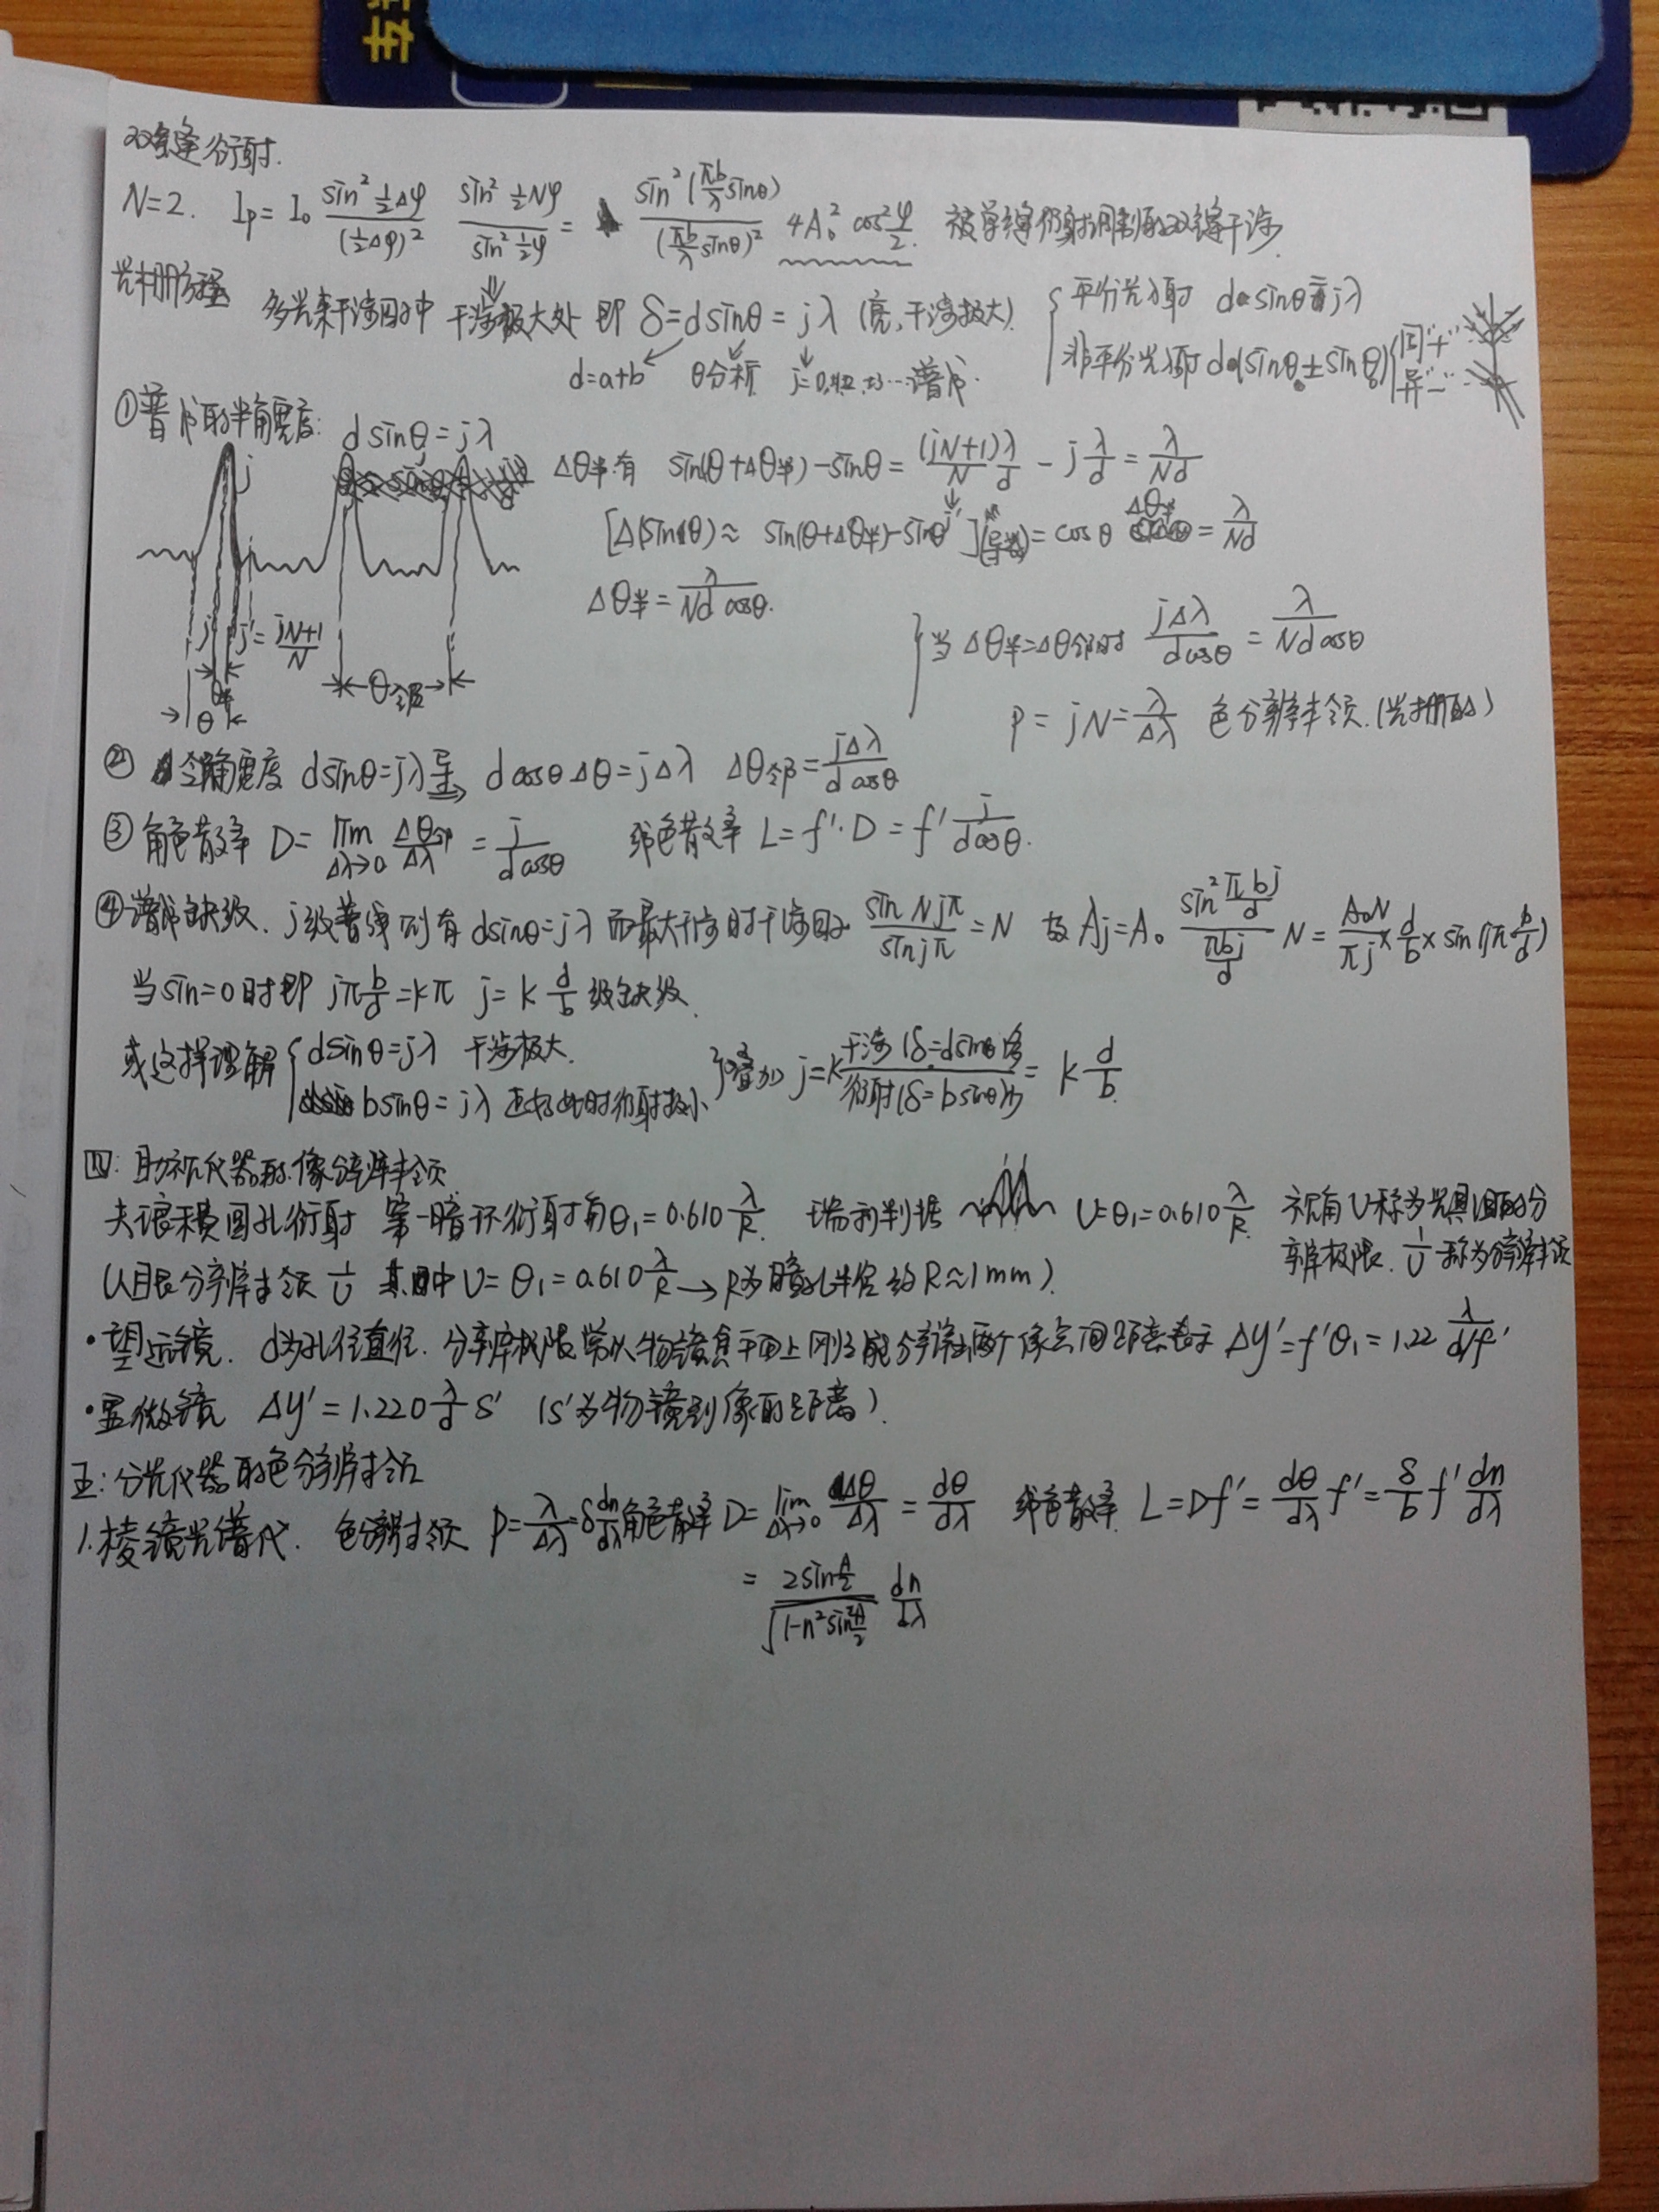 车
双缝衍射.
N=2. Ip=I₀ sin²½Δφ/(½Δφ)² sin²½Nφ/sin²½φ = sin²(πb/λ sinθ)/(πb/λ sinθ)² 4A₀²cos²φ/2. 被单缝衍射调制的双缝干涉.
光栅方程 多光束干涉因中 干涉极大处 即 δ=dsinθ=jλ (亮,干涉极大). { 平行光入射 dsinθ=jλ
d=a+b j=0,±1,±2… 谱序. 非平行光入射 d(sinθ±sinθ₀) {同"+" 异"−"
①谱序的半角宽度: dsinθ=jλ
Δθ半有 sin(θ+Δθ半)−sinθ=(jN+1)/N λ/d − jλ/d = λ/Nd
[Δ(sinθ)≈ sin(θ+Δθ半)−sinθ](导数)=cosθ Δθ半=λ/Nd
Δθ半=λ/Nd cosθ.
j j'=jN+1/N
θ半 θ θ邻
当Δθ半=Δθ邻时 jΔλ/dcosθ = λ/Nd cosθ
P=jN=λ/Δλ 色分辨本领.(光栅的)
② 邻角宽度 dsinθ=jλ 导⇒ dcosθΔθ=jΔλ Δθ邻=jΔλ/dcosθ
③ 角色散率 D=lim Δλ→0 Δθ邻/Δλ = j/dcosθ 线色散率 L=f'·D=f' j/dcosθ.
④谱线缺级. j级谱线则有 dsinθ=jλ 而最大干涉时干涉因子 sinNjπ/sinjπ=N 故 Aj=A₀ sin²πbj/d / πbj/d N=A₀N/πj × d/b × sin(jπ b/d)
当sin=0时即 jπ b/d=kπ j=k d/b 级缺级.
或这样理解 { dsinθ=jλ 干涉极大.
bsinθ=jλ 正好此时衍射极小 } 叠加 j=k 干涉(δ=dsinθ)/衍射(δ=bsinθ) = k d/b.
四: 助视仪器的像分辨本领
夫琅禾费圆孔衍射 第一暗环衍射角θ₁=0.610 λ/R. 瑞利判据 U=θ₁=0.610 λ/R. 视角U称为光具组的分
辨极限. 1/U称为分辨本领
人眼分辨本领 1/U 其中U=θ₁=0.610 λ/R → R为瞳孔半径 约R≈1mm).
·望远镜. d为孔径直径. 分辨极限常以物镜焦平面上刚刚能分辨出两个像点间距离表示 Δy'=f'θ₁=1.22 λ/d/f'
·显微镜 Δy'=1.220 λ/d s' (s'为物镜到像的距离).
五: 分光仪器的色分辨本领
1.棱镜光谱仪. 色分辨本领 P=λ/Δλ=δ dn/dλ 角色散率 D=lim Δλ→0 Δθ/Δλ = dθ/dλ 线色散率 L=Df'=dθ/dλ f'=δ/b f' dn/dλ
= 2sin A/2 / √(1−n²sin²A/2) dn/dλ